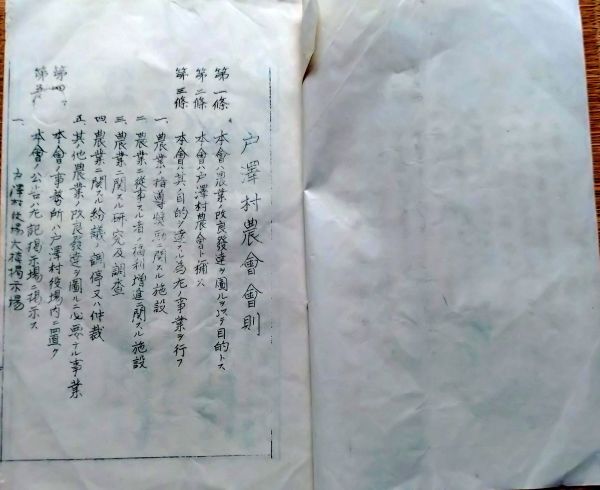 戸澤村農會會則
第一條 本會ハ農業ノ改良發達ヲ圖ルヲ以テ目的トス
第二條 本會ハ戸澤村農會ト稱ス
第三條 本會ハ其目的ヲ達スル為左ノ事業ヲ行フ
一 農業ノ指導奬励ニ関スル施設
二 農業ニ從事スル者ノ福利増進ニ関スル施設
三 農業ニ関スル研究及調査
四 農業ニ関スル紛議ノ調停又ハ仲裁
五 其他農業ノ改良發達ヲ圖ルニ必要ナル事業
第四條 本會ノ事務所ハ戸澤村役場内ニ置ク
第五條 本會ノ公告ハ左記掲示場ニ掲示ス
一、戸澤村役場大掲示場